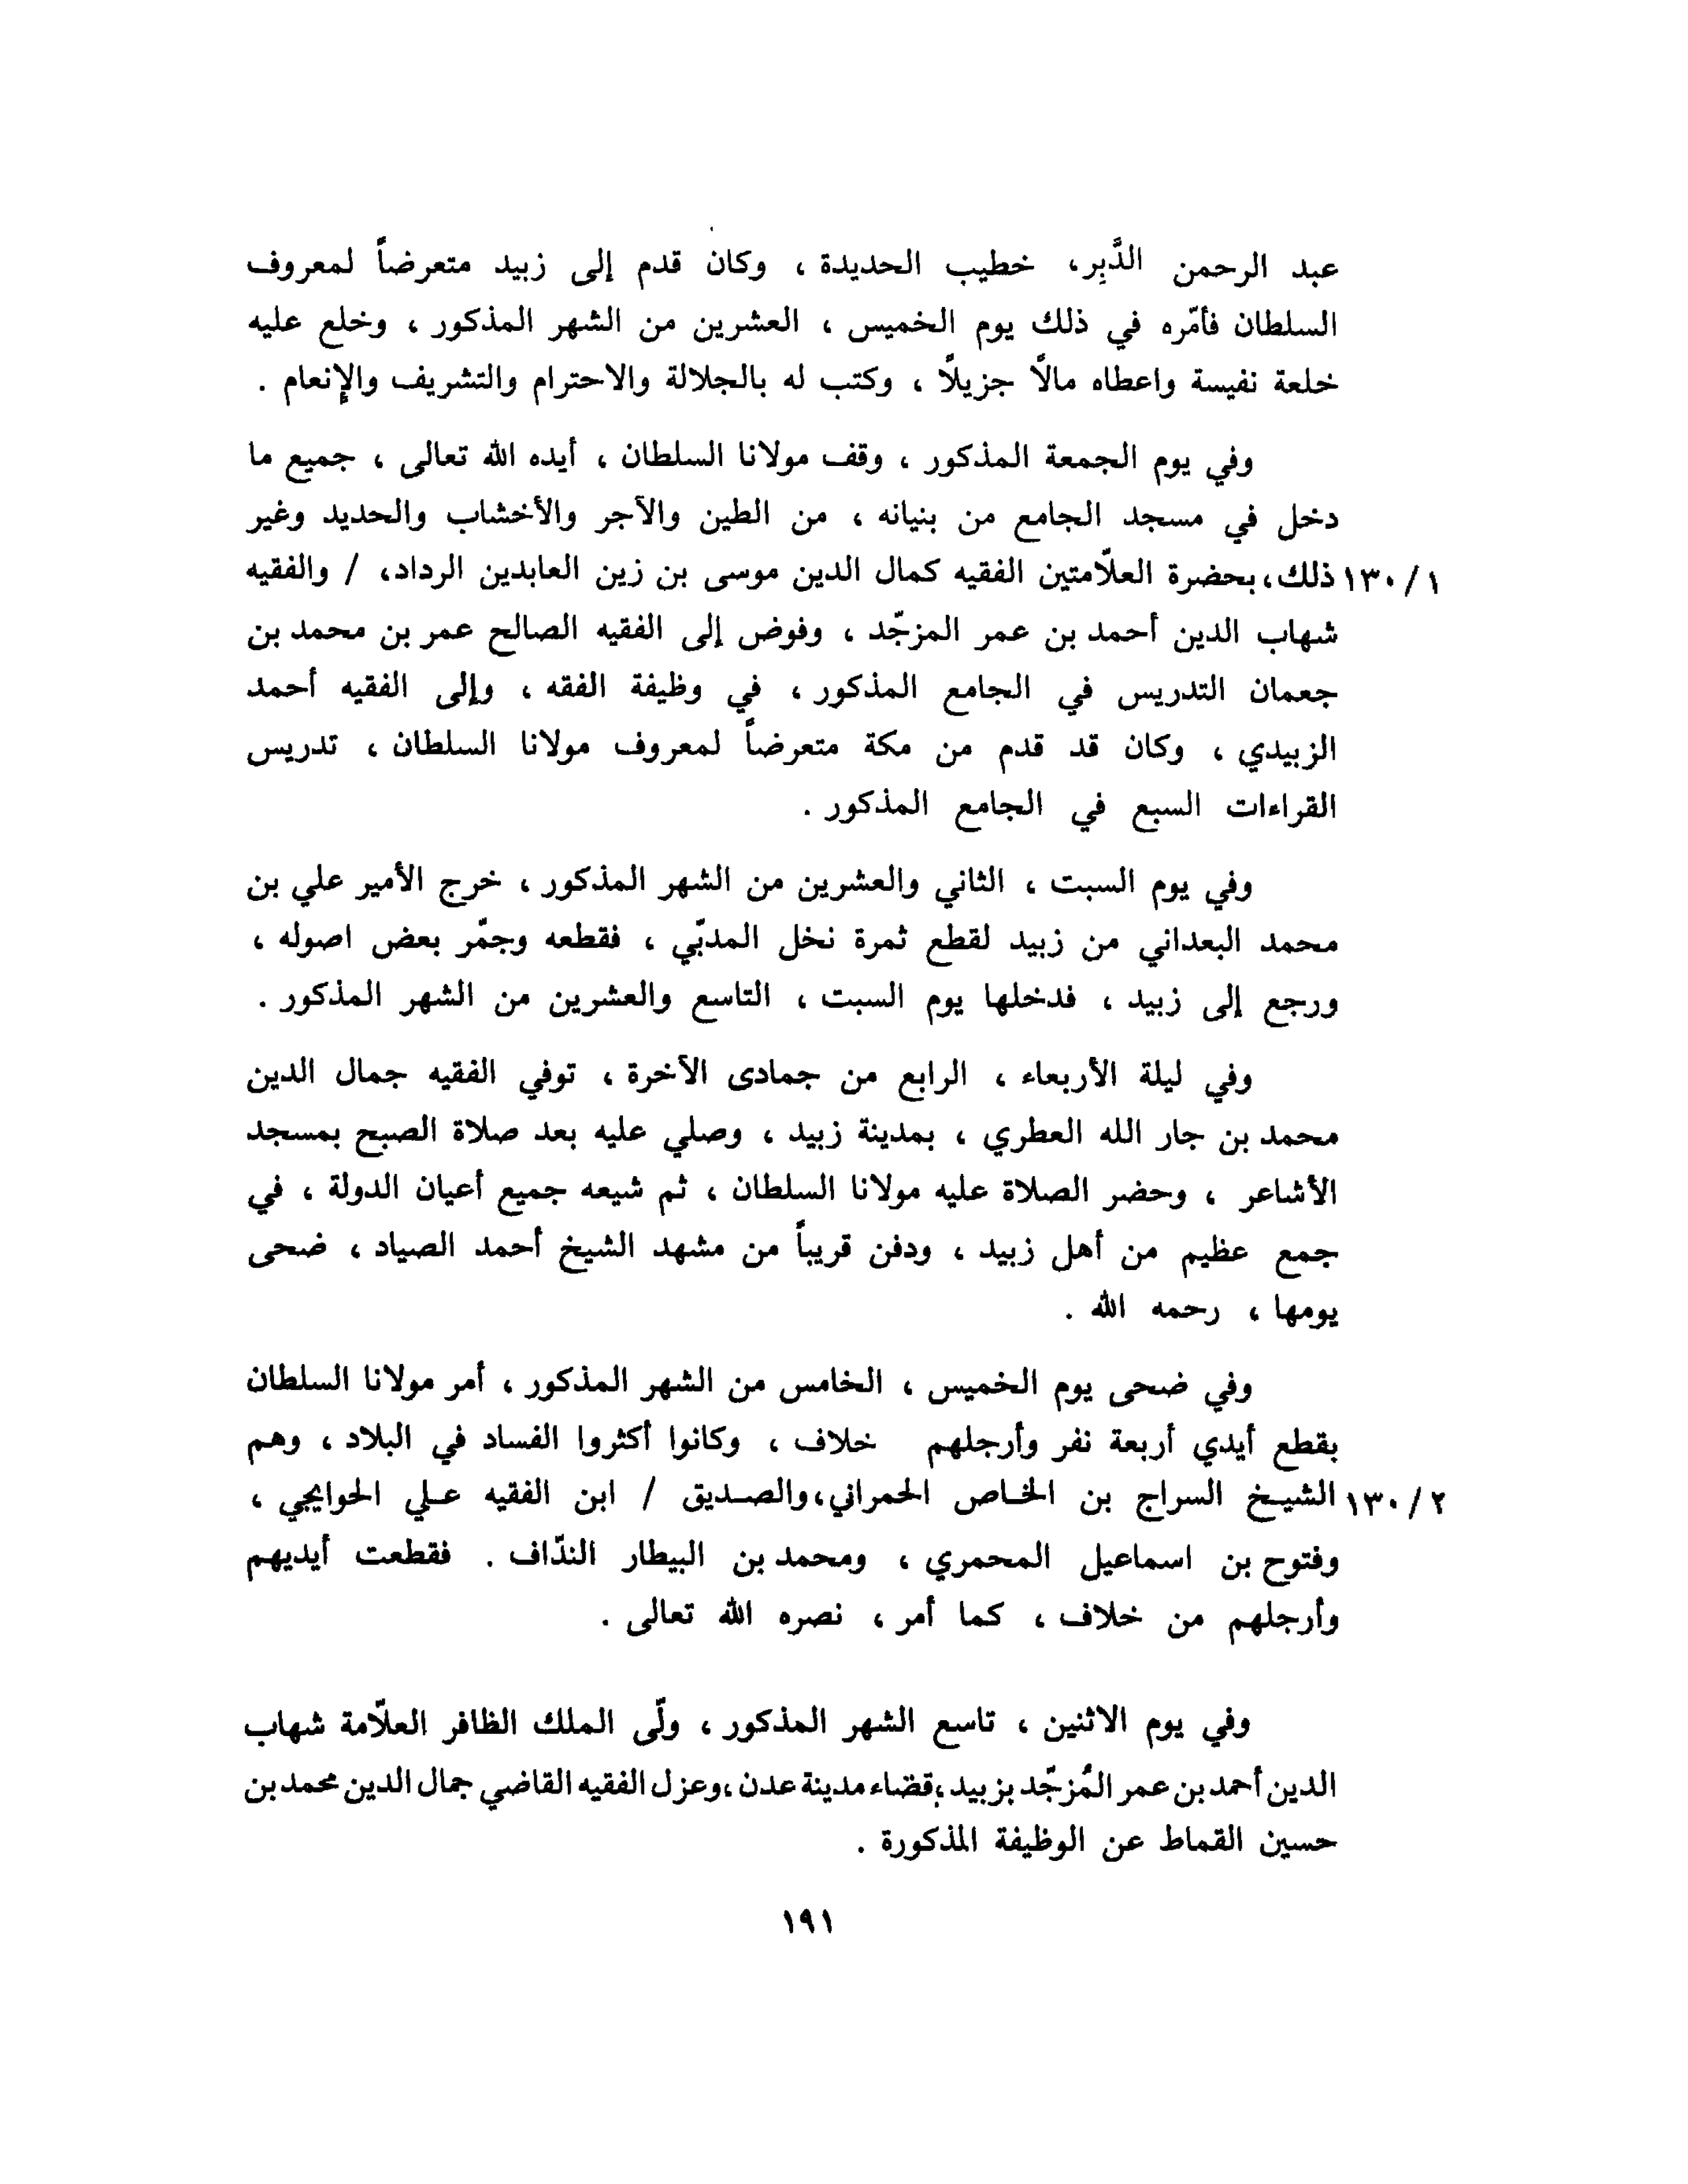 عبد الرحمن الدَّبِر، خطيب الحديدة ، وكان قدم إلى زبيد متعرضاً لمعروف
السلطان فأمّره في ذلك يوم الخميس ، العشرين من الشهر المذكور ، وخلع عليه
خلعة نفيسة واعطاه مالاً جزيلاً ، وكتب له بالجلالة والاحترام والتشريف والإنعام .
وفي يوم الجمعة المذكور ، وقف مولانا السلطان ، أيده الله تعالى ، جميع ما
دخل في مسجد الجامع من بنيانه ، من الطين والآجر والأخشاب والحديد وغير
١٣٠/١ ذلك، بحضرة العلاّمتين الفقيه كمال الدين موسى بن زين العابدين الرداد، / والفقيه
شهاب الدين أحمد بن عمر المزجّد ، وفوض إلى الفقيه الصالح عمر بن محمد بن
جعمان التدريس في الجامع المذكور ، في وظيفة الفقه ، وإلى الفقيه أحمد
الزبيدي ، وكان قد قدم من مكة متعرضاً لمعروف مولانا السلطان ، تدريس
القراءات السبع في الجامع المذكور .
وفي يوم السبت ، الثاني والعشرين من الشهر المذكور ، خرج الأمير علي بن
محمد البعداني من زبيد لقطع ثمرة نخل المدبّي ، فقطعه وجمّر بعض اصوله ،
ورجع إلى زبيد ، فدخلها يوم السبت ، التاسع والعشرين من الشهر المذكور .
وفي ليلة الأربعاء ، الرابع من جمادى الآخرة ، توفي الفقيه جمال الدين
محمد بن جار الله العطري ، بمدينة زبيد ، وصلي عليه بعد صلاة الصبح بمسجد
الأشاعر ، وحضر الصلاة عليه مولانا السلطان ، ثم شيعه جميع أعيان الدولة ، في
جمع عظيم من أهل زبيد ، ودفن قريباً من مشهد الشيخ أحمد الصياد ، ضحى
يومها ، رحمه الله .
وفي ضحى يوم الخميس ، الخامس من الشهر المذكور ، أمر مولانا السلطان
بقطع أيدي أربعة نفر وأرجلهم خلاف ، وكانوا أكثروا الفساد في البلاد ، وهم
١٣٠/٢ الشيخ السراج بن الخاص الحمراني، والصديق / ابن الفقيه علي الحوايجي ،
وفتوح بن اسماعيل المحمري ، ومحمد بن البيطار الندّاف . فقطعت أيديهم
وأرجلهم من خلاف ، كما أمر ، نصره الله تعالى .
وفي يوم الاثنين ، تاسع الشهر المذكور ، ولّى الملك الظافر العلاّمة شهاب
الدين أحمد بن عمر المُزجّد بزبيد ، قضاء مدينة عدن ، وعزل الفقيه القاضي جمال الدين محمد بن
حسين القماط عن الوظيفة المذكورة .
١٩١